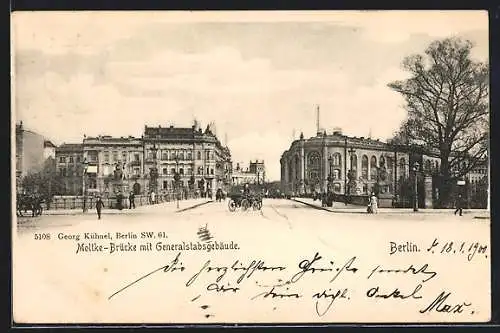 5108 Georg Kühnel, Berlin SW. 61.
Moltke-Brücke mit Generalstabsgebäude.
Berlin. d. 18.1.1900
Die herzlichsten Grüsse sendet
Dir dein Onkel Max